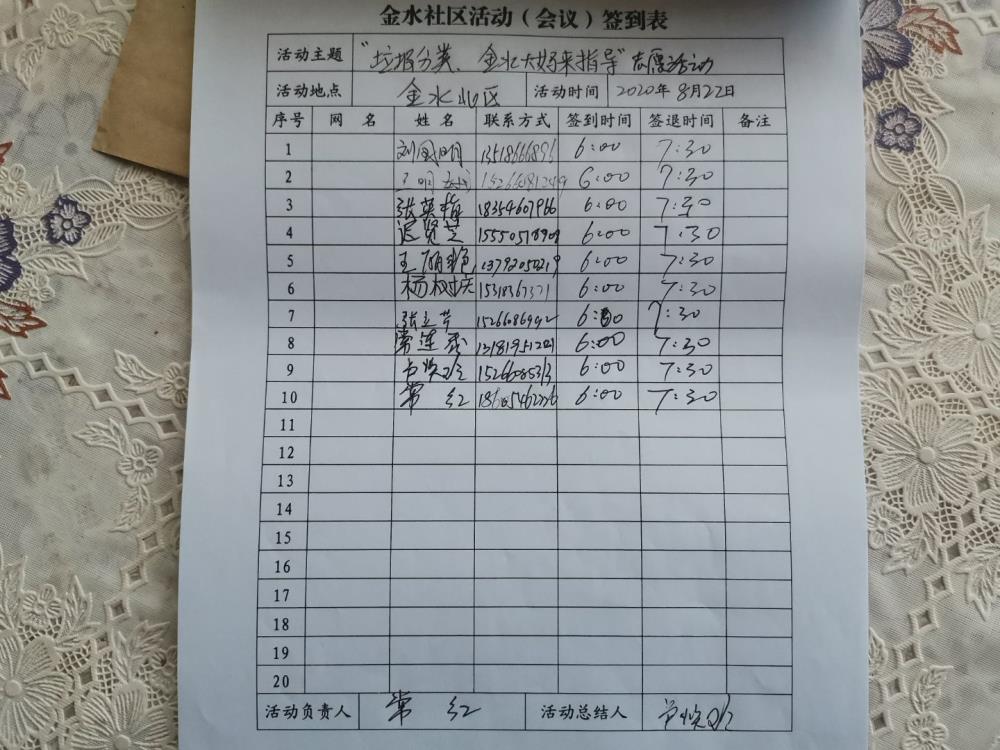 金水社区活动（会议）签到表
活动主题 “垃圾分类、金水大好来指导”志愿活动
活动地点 金水北区 活动时间 2020年8月22日
序号 网 名 姓 名 联系方式 签到时间 签退时间 备注
1 6:00 7:30
2 6:00 7:30
3 张英梅 18354607966 6:00 7:30
4 迟贤芝 6:00 7:30
5 6:00 7:30
6 杨树庆 6:00 7:30
7 张立芹 6:00 7:30
8 常莲秀 6:00 7:30
9 6:00 7:30
10 常 红 6:00 7:30
11
12
13
14
15
16
17
18
19
20
活动负责人 常 红 活动总结人